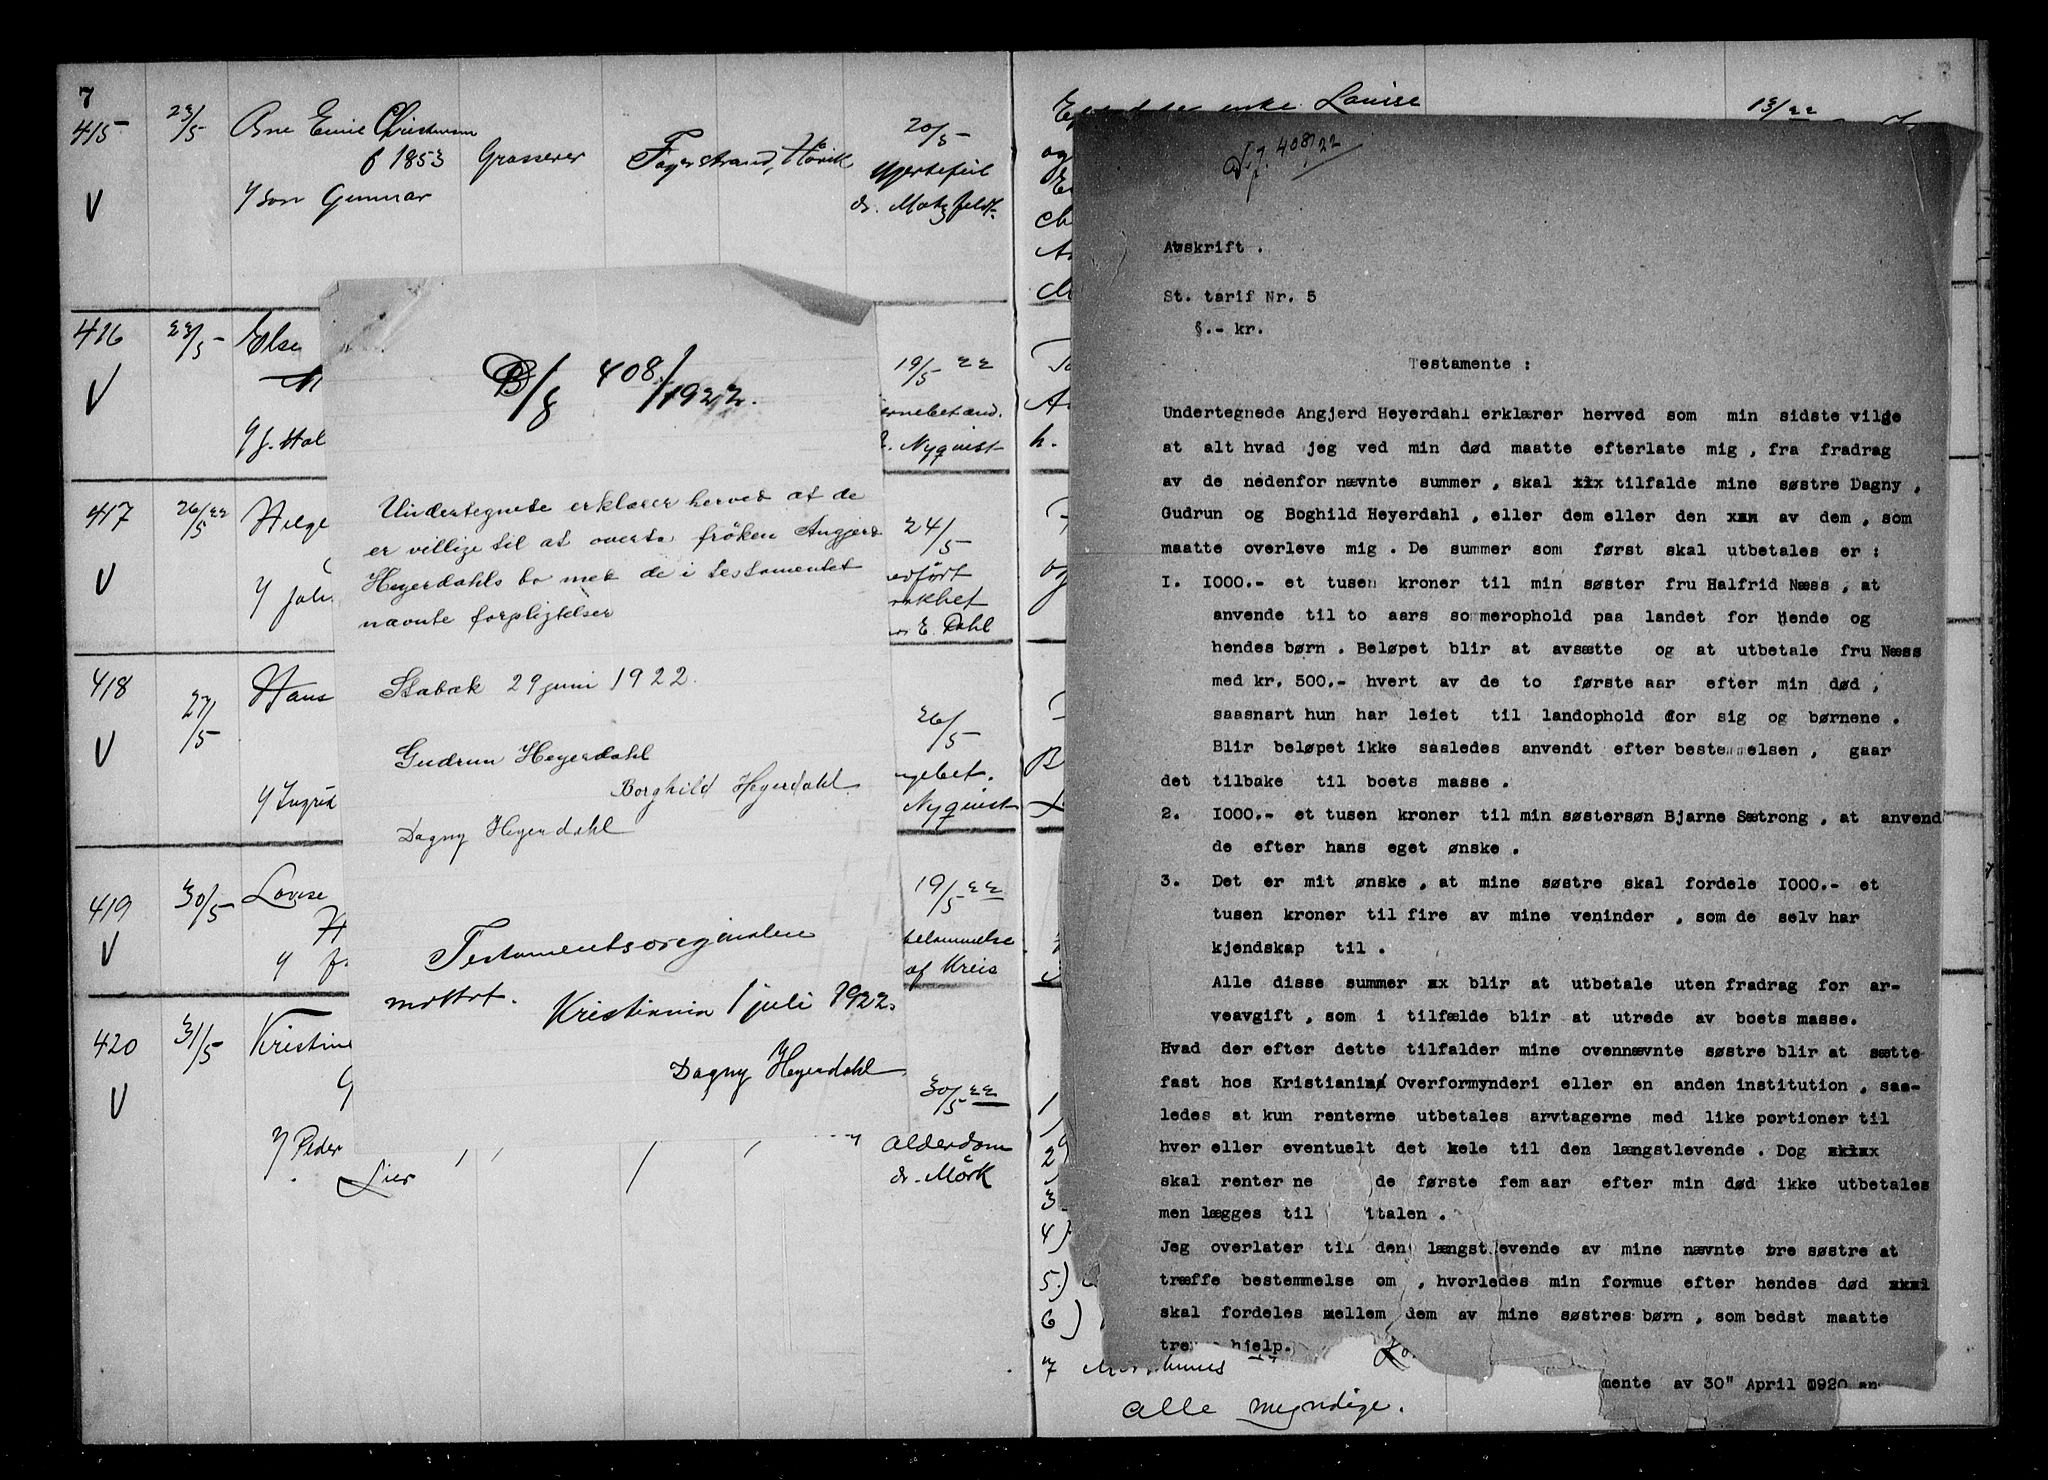 7
415 23/5 Arne Emil Christensen 20/5
f 1853 Grosserer Fagerstrand, Hövik Hjertefeil
V y sön Gunnar dr. Motzfeldt.
416 23/5 Else 19/5 22
V
y f. Hal Nyquist
417 26/5 22 Helge 24/5
V y Joh E. Dahl
418 27/5 Hans 26/5
V
y Ingrid Nyquist
419 30/5 Lovise 19/5 22
V H
y f. af Kreis
420 31/5 Kristine
V 30/5 22
y Peder Alderdom
Lier dr. Mörk
D/J 408/1922.
Undertegnete erklærer herved at de
er villige til at overta fröken Angjerd
Heyerdahls bo med de i testamentet
nævnte forpligtelser
Stabæk 29 juni 1922.
Gudrun Heyerdahl
Borghild Heyerdahl.
Dagny Heyerdahl
Testamentsoriginalen
mottat.
Kristiania 1 juli 1922.
Dagny Heyerdahl
enke Lovise 13/22
1
2
3
4)
5.)
6)
7
alle myndige.
D.J. 408/22
Avskrift .
St. tarif Nr. 5
6.- kr.
Testamente :
Undertegnede Angjerd Heyerdahl erklærer herved som min sidste vilge
at alt hvad jeg ved min død maatte efterlate mig , fra fradrag
av de nedenfor nævnte summer , skal xxx tilfalde mine søstre Dagny ,
Gudrun og Boghild Heyerdahl , eller dem eller den xxn av dem , som
maatte overleve mig . De summer som først skal utbetales er :
I. I000.- et tusen kroner til min søster fru Halfrid Næss , at
anvende til to aars sommerophold paa landet for hende og
hendes børn . Beløpet blir at avsætte og at utbetale fru Næss
med kr. 500.- hvert av de to første aar efter min død ,
saasnart hun har leiet til landophold for sig og børnene .
Blir beløpet ikke saaledes anvendt efter bestemmelsen , gaar
det tilbake til boets masse .
2. I000.- et tusen kroner til min søstersøn Bjarne Sætrong , at anvend
de efter hans eget ønske .
3. Det er mit ønske , at mine søstre skal fordele I000.- et
tusen kroner til fire av mine veninder , som de selv har
kjendskap til .
Alle disse summer xx blir at utbetale uten fradrag for ar-
veavgift , som i tilfælde blir at utrede av boets masse.
Hvad der efter dette tilfalder mine ovennævnte søstre blir at sætte
fast hos Kristiania Overformynderi eller en anden institution , saa-
ledes at kun renterne utbetales arvtagerne med like portioner til
hver eller eventuelt det hele til den længstlevende . Dog xxxxx
skal renterne de første fem aar efter min død ikke utbetales
men lægges til italen .
Jeg overlater til den længstlevende av mine nævnte tre søstre at
træffe bestemmelse om , hvorledes min formue efter hendes død xxxl
skal fordeles mellem dem av mine søstres børn , som bedst maatte
tre hjelp.
mente av 30" April 1920 an